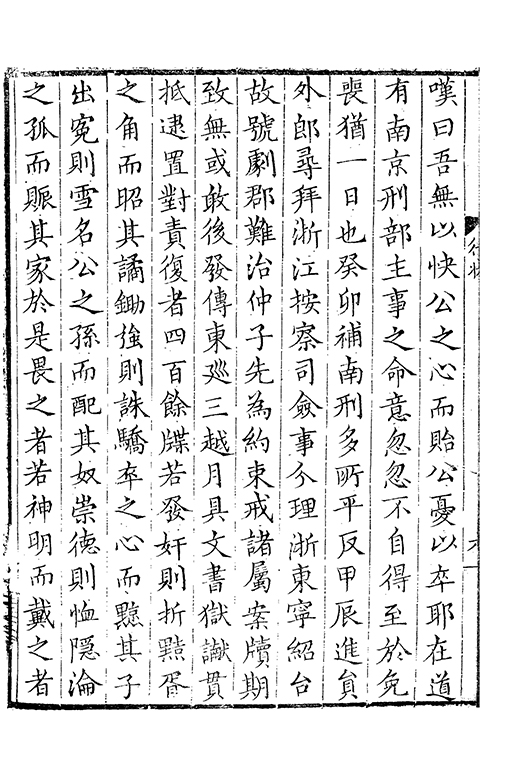 嘆曰吾無以快公之心而貽公憂以卒耶在道
有南京刑部主事之命意忽忽不自得至於免
喪猶一日也癸卯補南刑多所平反甲辰進貟
外郎尋拜浙江按察司僉事分理浙東寧紹台
故號劇郡難治仲子先為約束戒諸屬案牘期
致無或敢後發傳東廵三越月具文書獄讞貫
抵逮置對責復者四百餘牒若發奸則折黠胥
之角而昭其譎鋤強則誅驕卒之心而黥其子
出寃則雪名公之孫而配其奴崇德則恤隠淪
之孤而賑其家於是畏之者若神明而戴之者
行狀